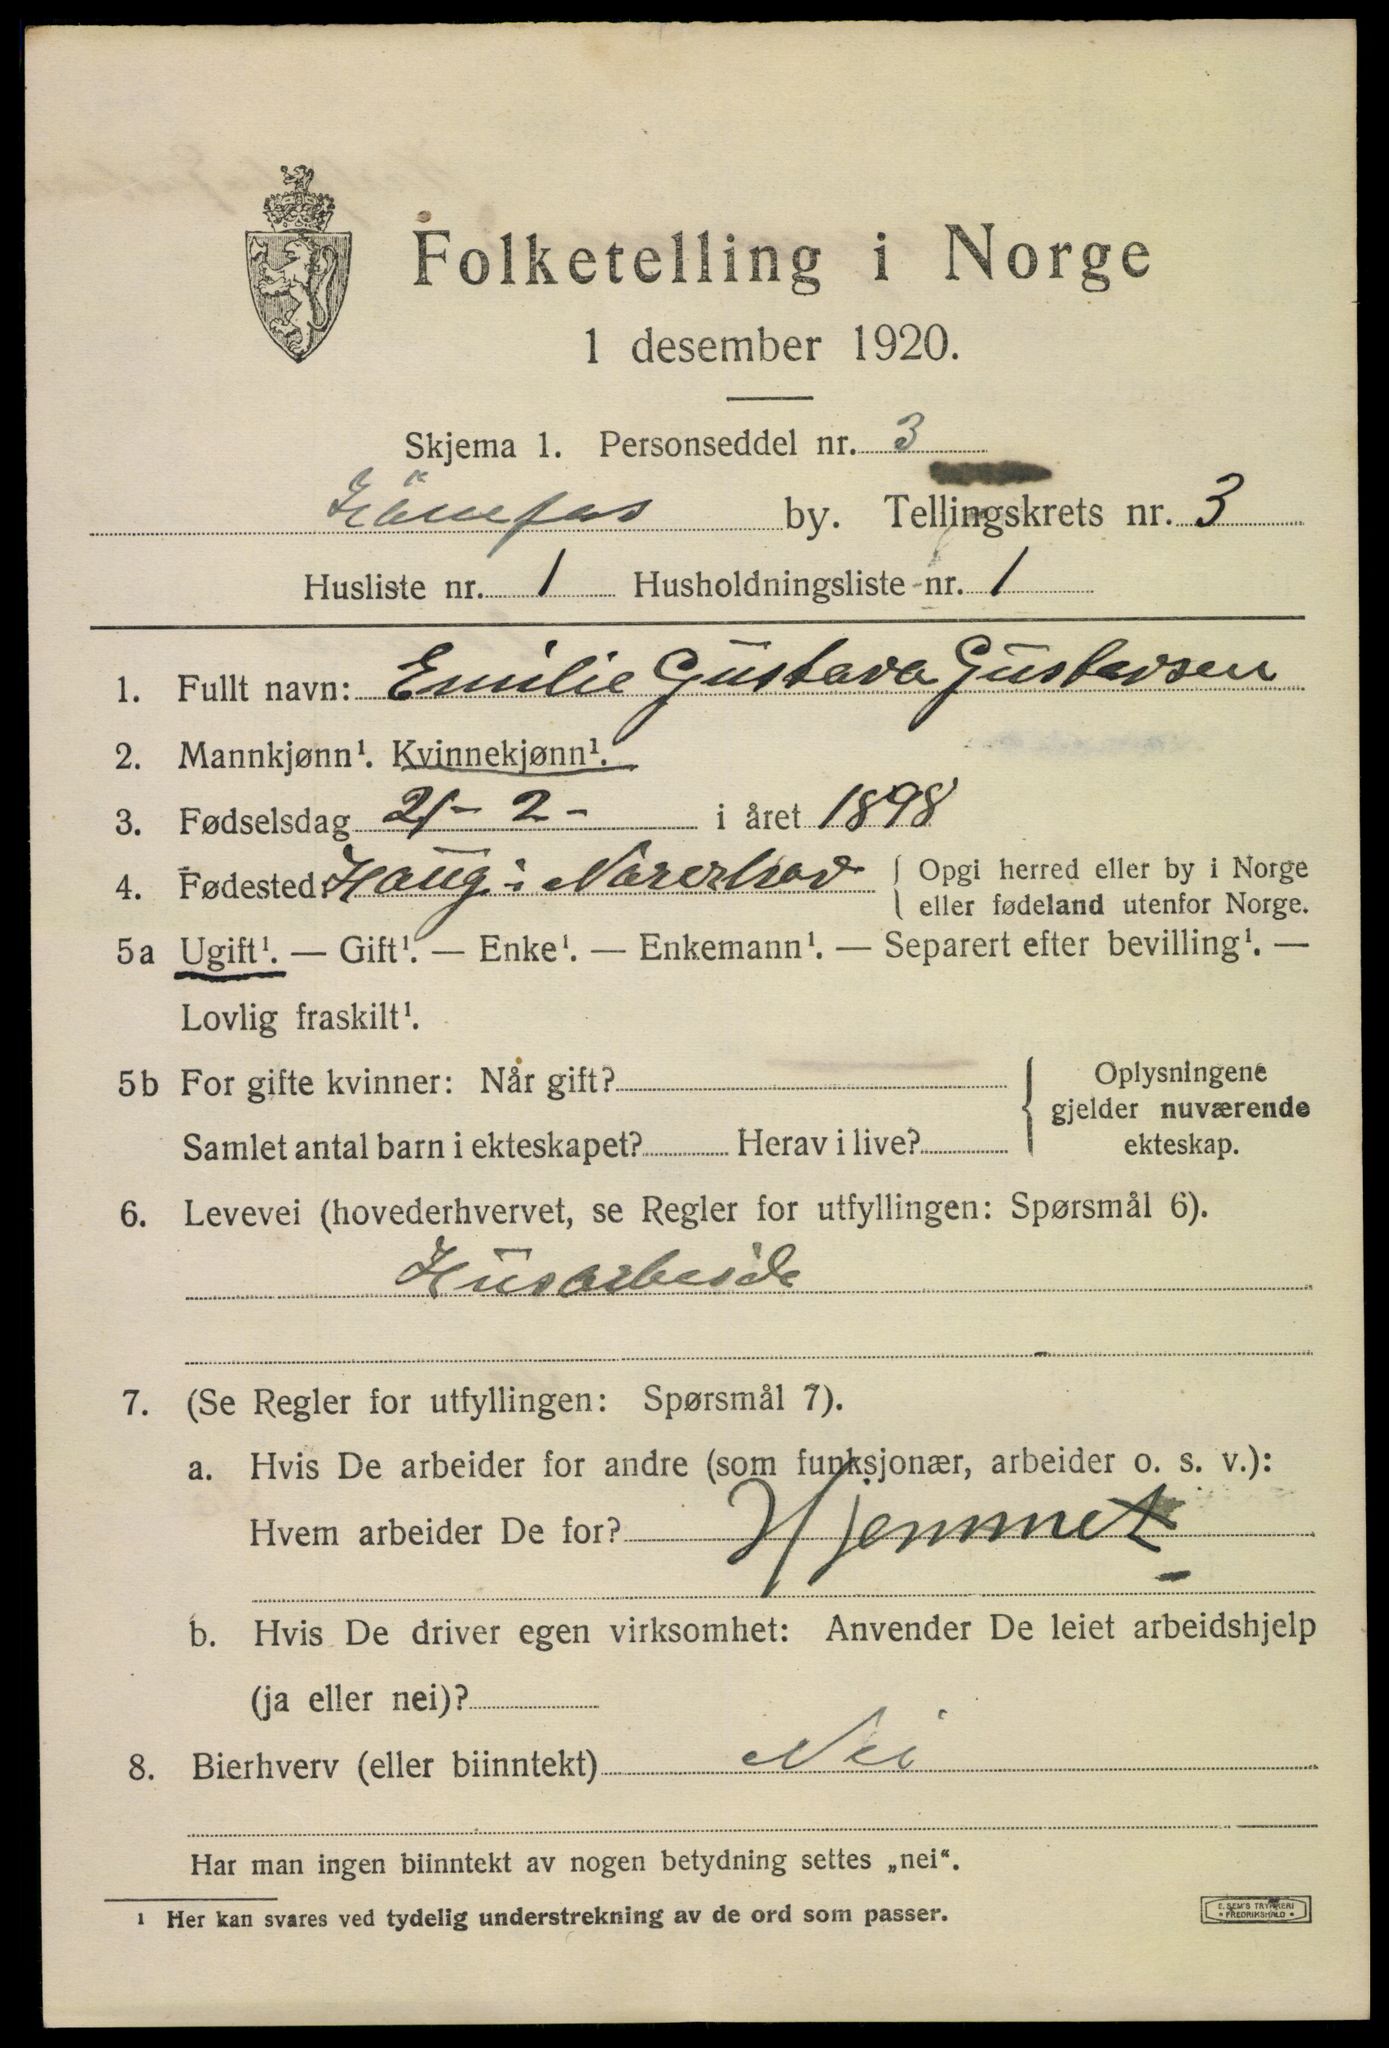 Folketelling i Norge
1 desember 1920.
Skjema 1. Personseddel nr. 3
Hönefos by. Tellingskrets nr. 3
Husliste nr. 1 Husholdningsliste nr. 1
1. Fullt navn: Emilie Gustava Gustavsen
2. Mannkjønn¹. Kvinnekjønn¹.
3. Fødselsdag 21-2- i året 1898
4. Fødested Haug i Norerhov { Opgi herred eller by i Norge
eller fødeland utenfor Norge.
5a Ugift¹. — Gift¹. — Enke¹. — Enkemann¹. — Separert efter bevilling¹. —
Lovlig fraskilt¹.
5b For gifte kvinner: Når gift?
Samlet antal barn i ekteskapet? Herav i live?
{ Oplysningene
gjelder nuværende
ekteskap.
6. Levevei (hovederhvervet, se Regler for utfyllingen: Spørsmål 6).
Husarbeide
7. (Se Regler for utfyllingen: Spørsmål 7).
a. Hvis De arbeider for andre (som funksjonær, arbeider o. s. v.):
Hvem arbeider De for? Hjemmet
b. Hvis De driver egen virksomhet: Anvender De leiet arbeidshjelp
(ja eller nei)?
8. Bierhverv (eller biinntekt) Nei
Har man ingen biinntekt av nogen betydning settes „nei“.
¹ Her kan svares ved tydelig understrekning av de ord som passer.
E. SEM'S TRYKKERI
• FREDRIKSHALD •